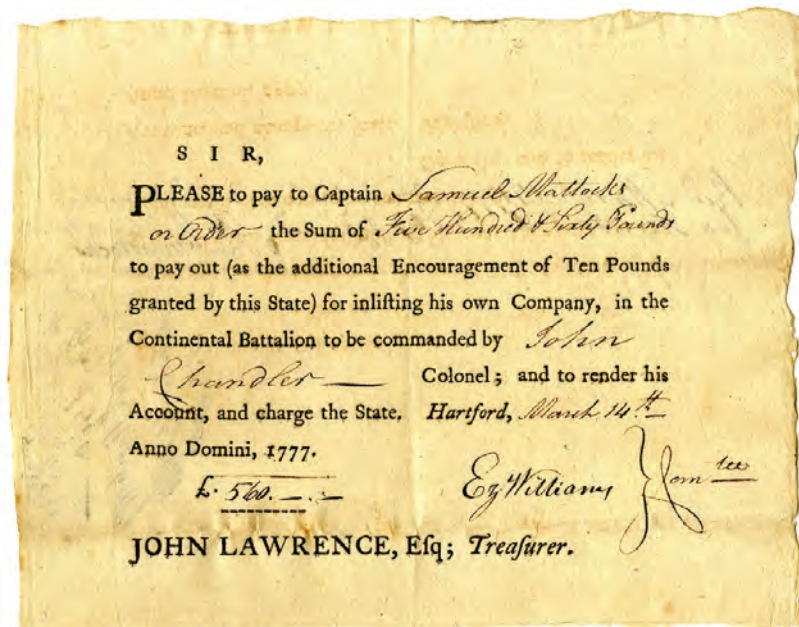 S I R,
PLEASE to pay to Captain Samuel Mattocks
or Order the Sum of Five Hundred & Sixty Pounds
to pay out (as the additional Encouragement of Ten Pounds
granted by this State) for inliſting his own Company, in the
Continental Battalion to be commanded by John
Chandler — Colonel; and to render his
Account, and charge the State. Hartford, March 14th
Anno Domini, 1777.
£. 560.—.—
Ez Williams } Comtee
JOHN LAWRENCE, Eſq; Treaſurer.